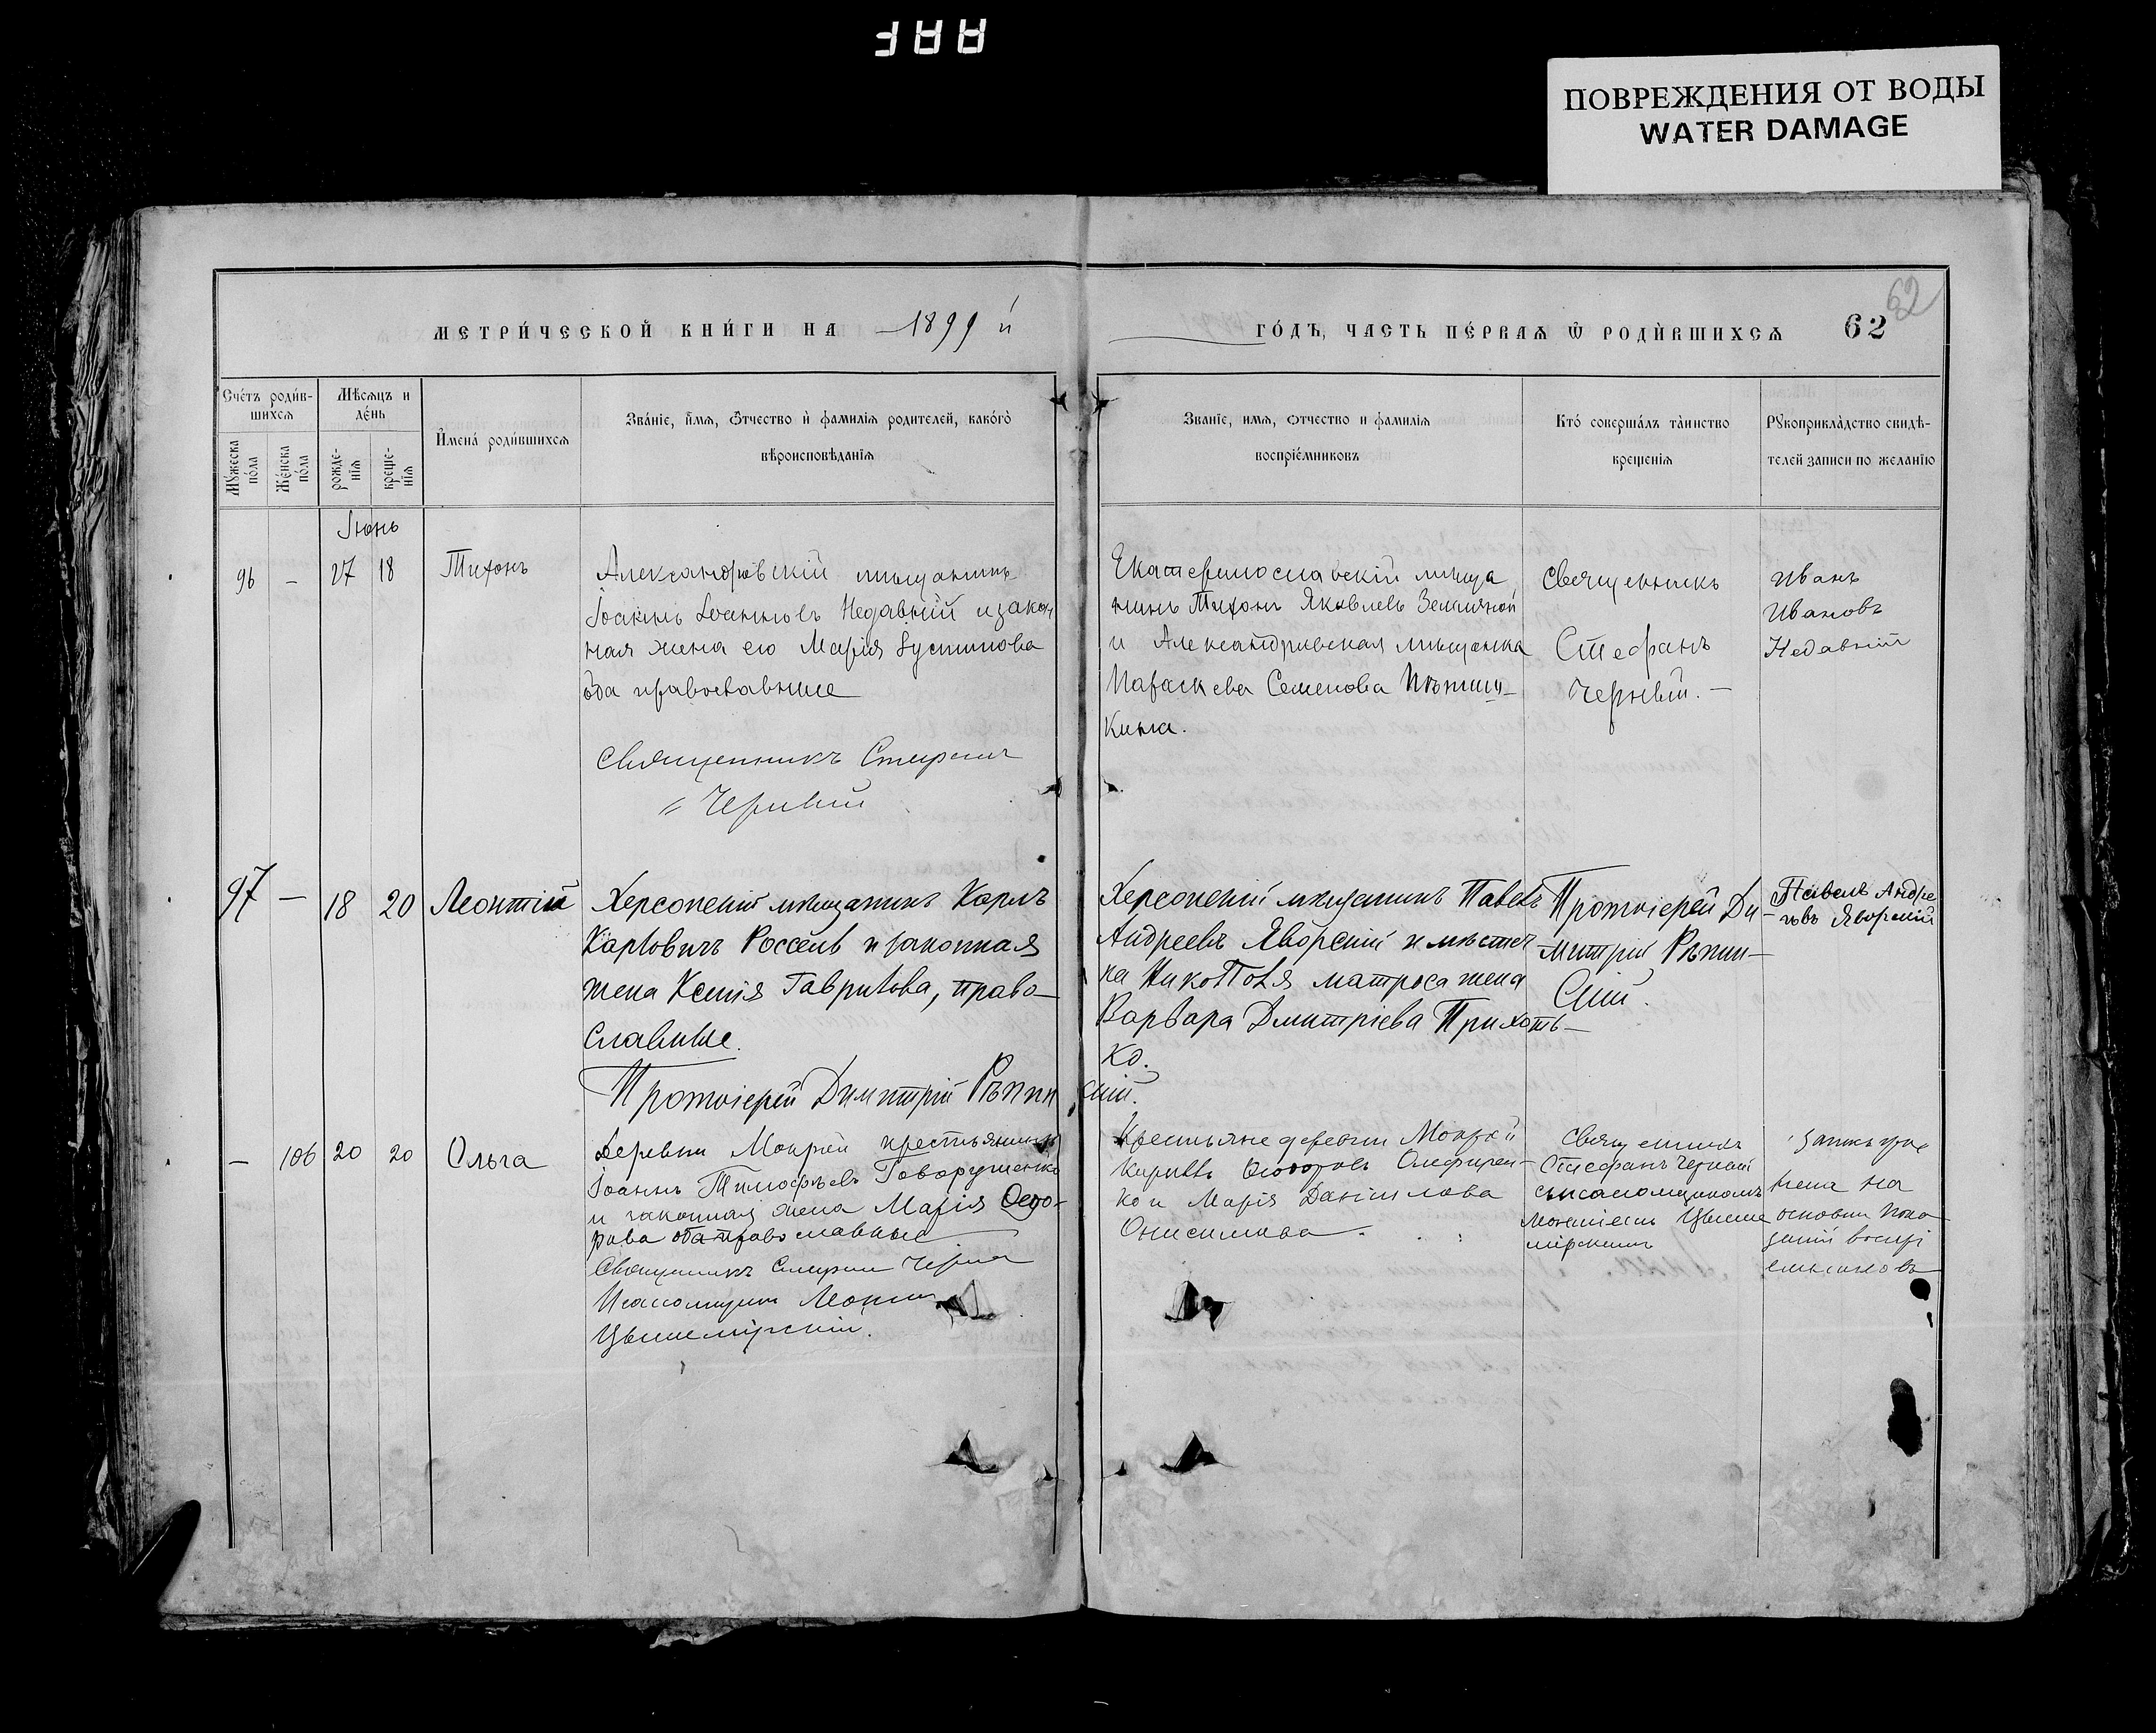 FAA
ПОВРЕЖДЕНИЯ ОТ ВОДЫ
WATER DAMAGE
62
МЕТРИ́ЧЕСКОЙ КНИ́ГИ НА 1899 й
ГО́ДЪ, ЧАСТЬ ПЕ́РВАѦ Ѡ РОДИ́ВШИХСѦ 62
Сче́тъ роди́в-
шихсѧ
Мѣсѧцъ и
де́нь
Му́жеска
по́ла
Же́нска
по́ла
рожде-
нїѧ
креще-
нїѧ
И҆мена́ роди́вшихсѧ
Зва́нїе, и҆́мѧ, ѻ҆́тчество и҆ фамилїѧ родителей, како́гѡ
вѣроисповѣ́данїѧ
Зва́нїе, имѧ, ѻтчество и фамилїѧ
воспрїе́мниковъ
Кто̀ соверша́лъ та́инство
креще́нїѧ
Рꙋкоприкла́дство свидѣ́-
телей записи по желанїю
Іюнь
96 – 17 18 Тихонъ
Александровскій мѣщанинъ
Іоаннъ Іоанновъ Недавній и закон
ная жена его Марія Іустинова
оба православные
Священникъ Стефанъ
Черный
Екатеринославскій мѣща
нинъ Тихонъ Яковлевъ Земляной
и Александровская мѣщанка
Параскева Семенова
кина.
Священникъ
Стефанъ
Черный. –
Иванъ
Ивановъ
Недавній
97 – 18 20 Леонтій
Херсонскій мѣщанинъ Карлъ
Карловичъ Россель и законная
жена Ксенія Гаврилова, право-
славные.
Протоіерей Димитрій Рѣпнин
скій.
Херсонскій мѣщанинъ Павелъ
Андреевъ Яворскій и мѣстеч
ка Никополя матроса жена
Варвара Дмитріева Прихоть-
ко.
Протоіерей Ди-
митрій Рѣпнин-
скій.
Павелъ Андре
евъ Яворскій
– 106 20 20 Ольга
Деревни Мокрой крестьянинъ
Іоаннъ Тимофѣевъ Говорущенко
и законная жена Марія Ѳедо-
рова оба православные
Священникъ Стефанъ Черный
Псаломщикъ Леонтій
Цышемірскій.
Крестьяне деревни Мокрой
Кириллъ Ѳеодоровъ Олефирен-
ко и Марія Даніилова
Онисимова.
Священникъ
Стефанъ Черный
съ псаломщикомъ
Леонтіемъ Цыше
мірскимъ
на
основаніи пока
заній воспрі
емниковъ